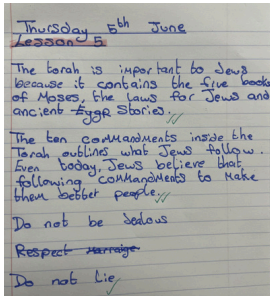 Thursday 5th June
Lesson 5
The torah is important to Jews
because it contains the five books
of Moses, the laws for Jews and
ancient stories.
The ten commandments inside the
Torah outlines what Jews follow.
Even today, Jews believe that
following commandments to make
them better people.
Do not be Jealous
Respect Marraige
Do not lie